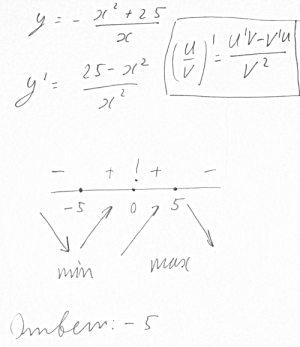 y = - x² + 25 / x
y' = 25 - x² / x²
(u/v)' = u'v - v'u / v²
- + ! + -
-5 0 5
min max
Ответ: -5